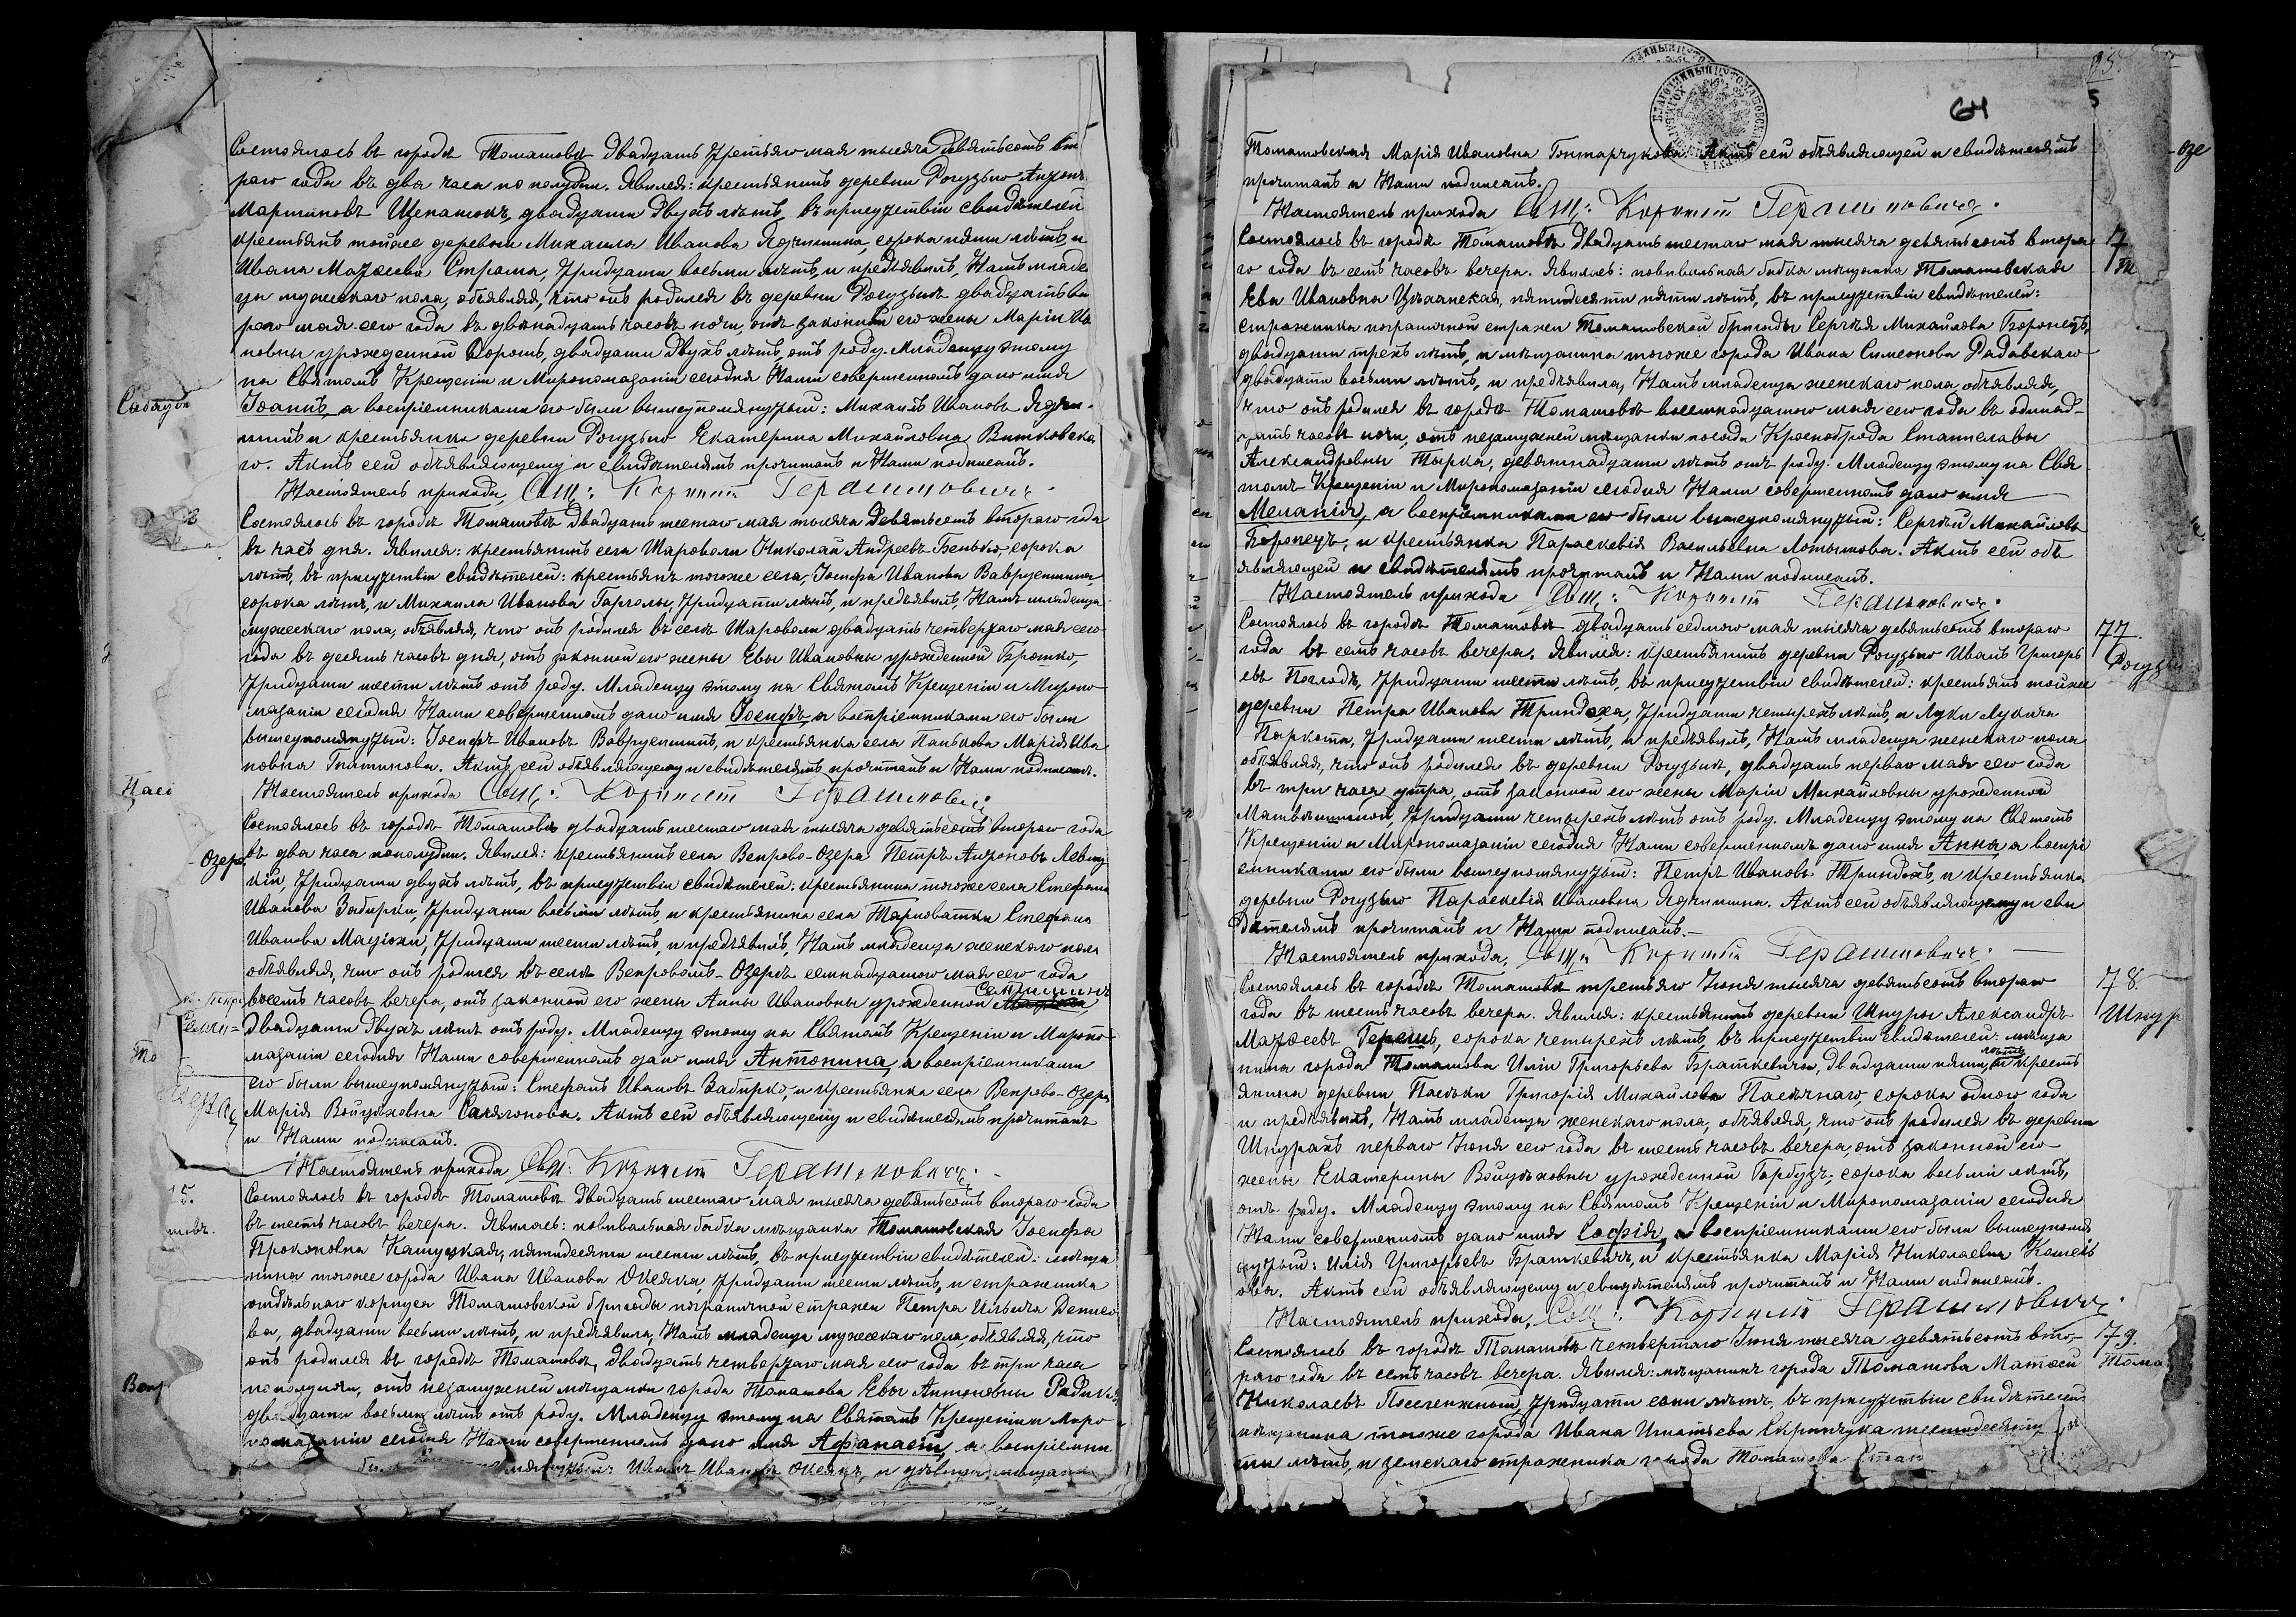 Состоялось въ городѣ Томашовѣ двадцать третьяго мая тысяча девятьсотъ вто
раго года въ два часа по полудни. Явился: крестьянинъ деревни Рогузьно Антонъ
Мартиновъ Шепатокъ, двадцати двухъ лѣтъ, въ присутствіи свидѣтелей
крестьянъ тойже деревни Михаила Иванова Ядчишина, сорока пяти лѣтъ, и
Ивана Матѳеева Страта, тридцати восьми лѣтъ, и предъявилъ, Намъ младен
ца мужескаго пола, объявляя, что онъ родился въ деревни Рогузьнѣ двадцать вто
раго мая сего года въ двѣнадцать часовъ ночи, отъ законной его жены Маріи Ива
новны урожденной Ворошъ, двадцати двухъ лѣтъ, отъ роду. Младенцу этому
на Святомъ Крещеніи и Миропомазаніи сегодня Нами совершенномъ дано имя
Іоаннъ, а воспріемниками его были вышеупомянутый: Михаилъ Ивановъ Ядчи-
шинъ и крестьянка деревни Рогузьно Екатерина Михайловна Витковска
го. Актъ сей объявляющему и свидѣтелямъ прочитанъ и Нами подписанъ.
Настоятель прихода, Свщ: Корнилій Герашиновичъ.
Состоялось въ городѣ Томашовѣ двадцать шестаго мая тысяча девятьсотъ втораго года
въ часъ дня. Явился: крестьянинъ села Шароволи Николай Андреевъ Бенько, сорока
лѣтъ, въ присутствіи свидѣтелей: крестьянъ тогоже села, Іосифа Иванова Ваврусишина
сорока лѣтъ, и Михаила Иванова Гарголы, тридцати лѣтъ, и предъявилъ, Намъ младенца
мужескаго пола, объявляя, что онъ родился въ селѣ Шароволи двадцать четвертаго мая сего
года въ десять часовъ дня, отъ законной его жены Евы Ивановны урожденной Брошко,
тридцати шести лѣтъ отъ роду. Младенцу этому на Святомъ Крещеніи и Миропо
мазаніи сегодня Нами совершенномъ дано имя Іосифъ, а воспріемниками его были
вышеупомянутый: Іосифъ Ивановъ Ваврусишинъ, и крестьянка села Панькова Марія Ива
новна. Актъ сей объявляющему и свидѣтелямъ прочитанъ и Нами подписанъ.
Настоятель прихода Свщ: Корнилій Герашинович
Состоялось въ городѣ Томашовѣ двадцать шестаго мая тысяча девятьсотъ втораго года
Озера въ два часа пополудни. Явился: крестьянинъ села Вепрово-Озера Петръ Антоновъ Левиц
кій, тридцати двухъ лѣтъ, въ присутствіи свидѣтелей: крестьянина тогоже села Стефана
Иванова Забирки, тридцати восьми лѣтъ, и крестьянина села Тарноватки Стефана
Иванова Мацюхи, тридцати шести лѣтъ, и предъявилъ, Намъ младенца женскаго пола
объявляя, что онъ родился въ селѣ Вепровомъ-Озерѣ семнадцатого мая сего года
восемь часовъ вечера, отъ законной его жены Анны Ивановны урожденной
двадцати двухъ лѣтъ отъ роду. Младенцу этому на Святомъ Крещеніи и Миропо
мазаніи сегодня Нами совершенномъ дано имя Антонина, а воспріемниками
его были вышеупомянутый: Стефанъ Ивановъ Забирко, и крестьянка села Вепрово-Озера
Марія Войцѣховна. Актъ сей объявляющему и свидѣтелямъ прочитанъ
и Нами подписанъ.
Настоятель прихода Свщ: Корнилій Герашиновичъ.
Состоялось въ городѣ Томашовѣ двадцать шестаго мая тысяча девятьсотъ втораго года
въ шесть часовъ вечера. Явилась: повивальная бабка мѣщанка Томашовская Іосифа
Прокоповна Кашуцкая, пятидесяти шести лѣтъ, въ присутствіи свидѣтелей: мѣща
нина тогоже города Ивана Иванова Океяка, тридцати шести лѣтъ, и стражника
отдѣльнаго корпуса Томашовской бригады пограничной стражи Петра Ильича Денисо
ва, двадцати восьми лѣтъ, и предъявила, Намъ младенца мужескаго пола, объявляя, что
онъ родился въ городѣ Томашовѣ, двадцать четвертаго мая сего года въ три часа
пополуночи, отъ незамужней мѣщанки города Томашова Евы Антоновны
двадцати восьми лѣтъ отъ роду. Младенцу этому на Святомъ Крещеніи и Миро
помазаніи сегодня Нами совершенномъ дано имя Аѳанасій, а воспріемни
Иванъ Ивановъ Океякъ, и дѣвица, мѣщанка
64
Томашовская Марія Ивановна Гонтарчукова. Актъ сей объявляющей и свидѣтелямъ
прочитанъ и Нами подписанъ.
Настоятель прихода Свщ: Корнилій Герашиновичъ.
Состоялось въ городѣ Томашовѣ двадцать шестаго мая тысяча девятьсотъ втора
го года въ семь часовъ вечера. Явилась: повивальная бабка мѣщанка Томашовская
Ева Ивановна, пятидесяти пяти лѣтъ, въ присутствіи свидѣтелей:
стражника пограничной стражи Томашовской бригады Сергѣя Михайлова Боронецъ,
двадцати трехъ лѣтъ, и мѣщанина тогоже города Ивана Симеонова Радавскаго
двадцати восьми лѣтъ, и предъявила, Намъ младенца женскаго пола, объявляя,
что онъ родился въ городѣ Томашовѣ восемнадцатого мая сего года въ одинад-
цать часовъ ночи, отъ незамужней мѣщанки посада Красноброда Станиславы
Александровны Тырка, девятнадцати лѣтъ отъ роду. Младенцу этому на Свя
томъ Крещеніи и Миропомазаніи сегодня Нами совершенномъ дано имя
Меланія, а воспріемниками его были вышеупомянутый: Сергѣй Михайловъ
Боронецъ, и крестьянка Параскевія Васильевна Лотышова. Актъ сей объ
являющей и свидѣтелямъ прочитанъ и Нами подписанъ.
Настоятель прихода Свщ: Корнилій Герашиновичъ.
Состоялось въ городѣ Томашовѣ двадцать седмого мая тысяча девятьсотъ втораго 77.
года въ семь часовъ вечера. Явился: крестьянинъ деревни Рогузьно Иванъ Григорь Рогузьн
евъ Погладъ, тридцати шести лѣтъ, въ присутствіи свидѣтелей: крестьянъ тойже
деревни Петра Иванова Триндоха, тридцати четырехъ лѣтъ, и Луки Лукича
Паркота, тридцати шести лѣтъ, и предъявилъ, Намъ младенца женскаго пола
объявляя, что онъ родился въ деревни Рогузьнѣ, двадцать перваго мая сего года
въ три часа утра, отъ законной его жены Маріи Михайловны урожденной
тридцати четырехъ лѣтъ отъ роду. Младенцу этому на Святомъ
Крещеніи и Миропомазаніи сегодня Нами совершенномъ дано имя Анна, а воспрі
емниками его были вышеупомянутый: Петръ Ивановъ Триндохъ, и крестьянка
деревни Рогузьно Параскевія Ивановна Ядчишина. Актъ сей объявляющему и сви
дѣтелямъ прочитанъ и Нами подписанъ.
Настоятель прихода, Свщ: Корнилій Герашиновичъ.
Состоялось въ городѣ Томашовѣ третьяго Іюня тысяча девятьсотъ втораго 78.
года въ шесть часовъ вечера. Явился: крестьянинъ деревни Шнуры Александръ Шнур
Матѳеевъ Герешъ, сорока четырехъ лѣтъ, въ присутствіи свидѣтелей: мѣща
нина города Томашова Иліи Григорьева Браткевича, двадцати пяти лѣтъ, и кресть
янина деревни Пасѣки Григорія Михайлова Пасѣчнаго, сорока одного года
и предъявилъ, Намъ младенца женскаго пола, объявляя, что онъ родился въ деревни
Шнурахъ перваго Іюня сего года въ шесть часовъ вечера, отъ законной его
жены Екатерины Войцѣховны урожденной Гарбузъ, сорока восьми лѣтъ,
отъ роду. Младенцу этому на Святомъ Крещеніи и Миропомазаніи сегодня
Нами совершенномъ дано имя Софія, а воспріемниками его были вышеупомя
нутый: Илія Григорьевъ Браткевичъ, и крестьянка Марія Николаевна
ова. Актъ сей объявляющему и свидѣтелямъ прочитанъ и Нами подписанъ.
Настоятель прихода, Свщ: Корнилій Герашиновичъ.
Состоялось въ городѣ Томашовѣ четвертаго Іюня тысяча девятьсотъ вто- 79.
раго года въ семь часовъ вечера. Явился: мѣщанинъ города Томашова Матѳей Тома
Николаевъ, тридцати семи лѣтъ, въ присутствіи свидѣтелей
мѣщанина тогоже города Ивана Игнатьева Скрипчука шестидесяти
ти лѣтъ, и земскаго стражника города Томашова